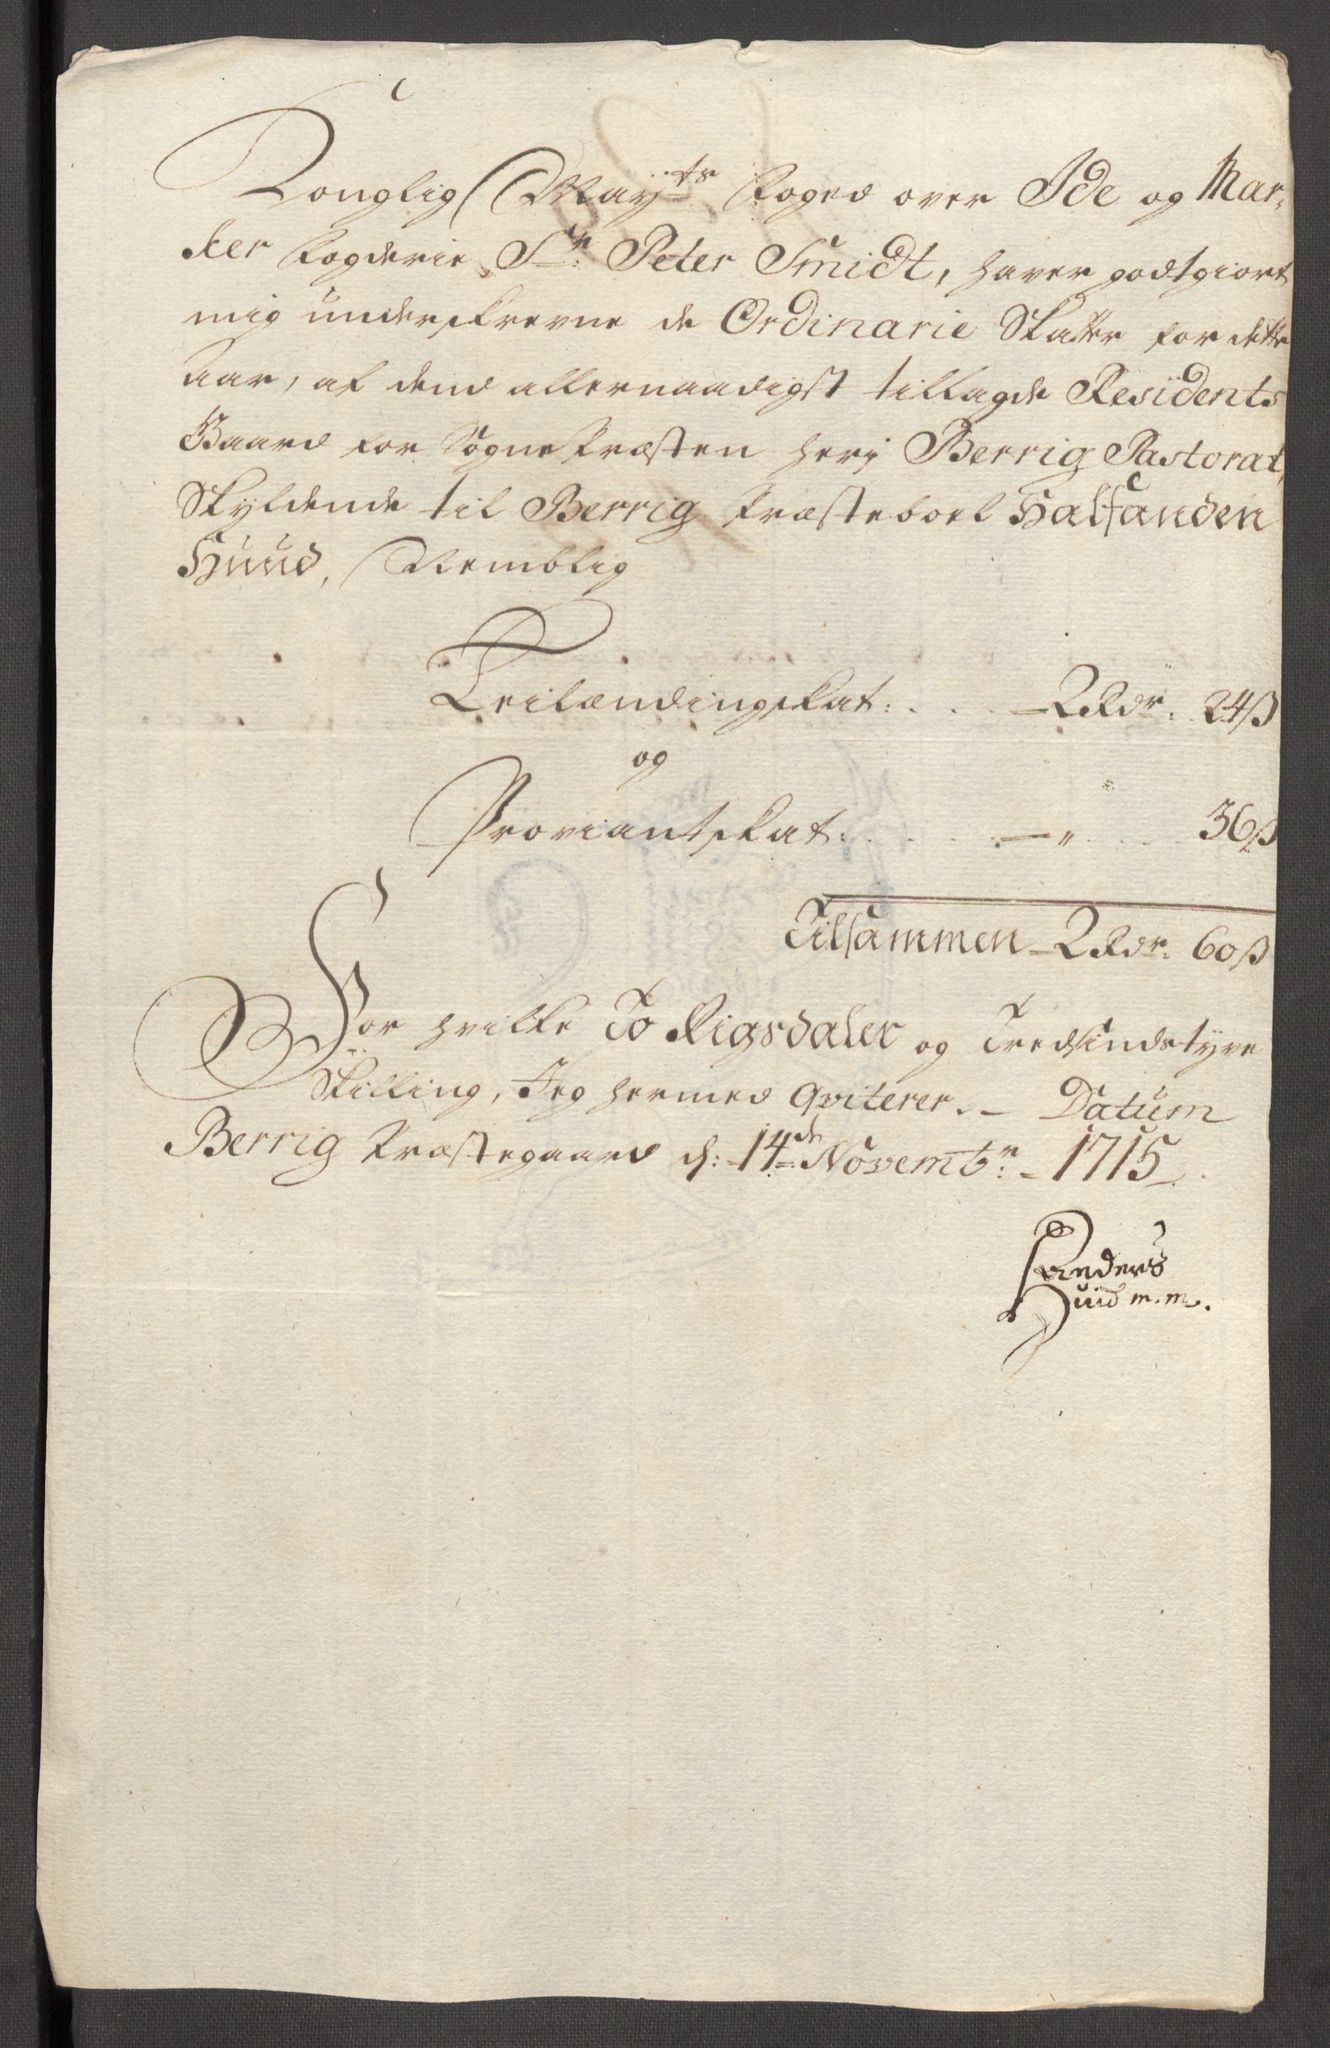 Konglig Mayts Foged over Ide og Mar,
ker Fogderie Sr. Peter Smidt, haver godtgiort
mig underskrevne de Ordinarie Skatter for dette
Aar, af dend allernaadigst tillagde Residents
Gaard for Sognepræsten herj Berrig Pastorat,
Skyldende til Berrig Præsteboel Halfanden
Huud, Nemblig
Leilændingskat: . . . — 2 Rdr. 24ß
og
Proviantskat: . . . . — „ . . . 36ß
Tilsammen — 2 Rdr. 60ß
For hvilke To Rigsdaler og Tredsindstyve
Skilling, Jeg hermed Qviterer. – Datum
Berrig Præstegaard d: 14de Novembr. – 1715.
Anders
Huid m.m.